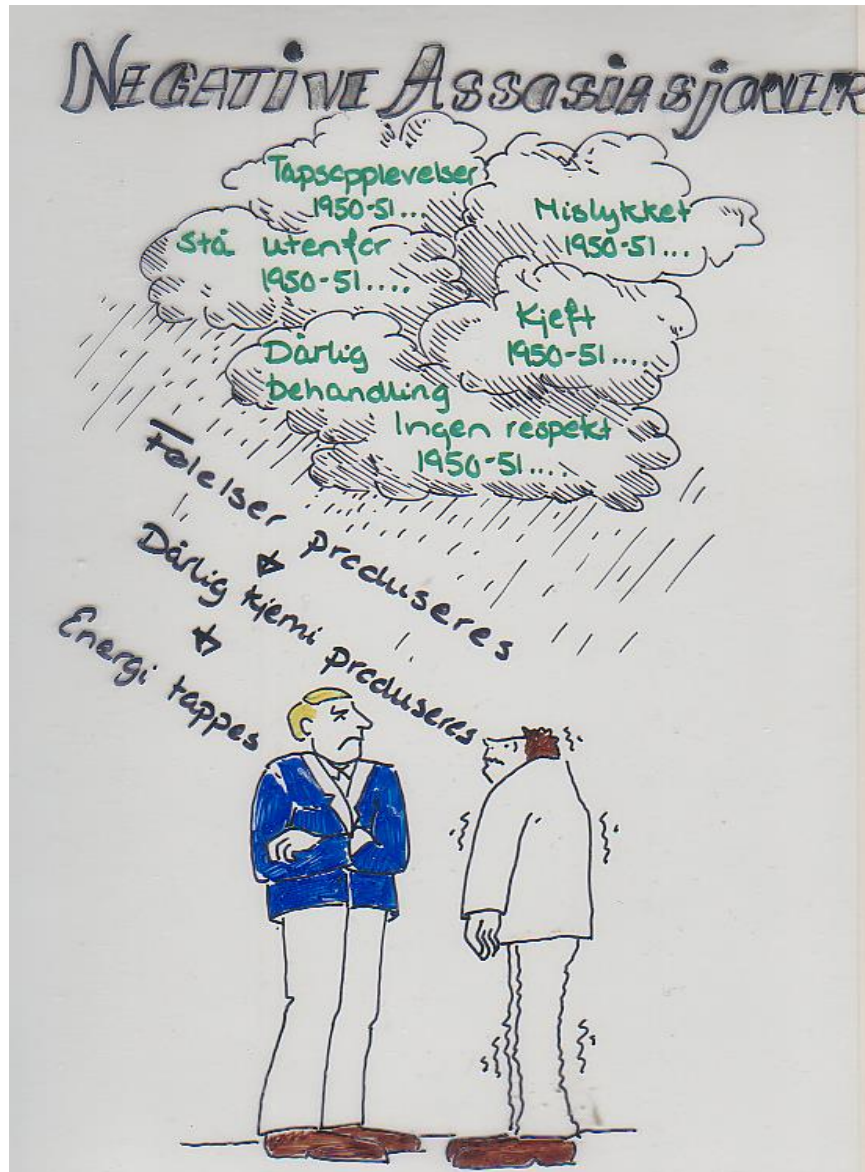 NEGATIVE ASSOSIASJONER
Tapsopplevelser
1950-51...
Mislykket
1950-51...
Stå utenfor
1950-51....
Kjeft
1950-51....
Dårlig
behandling
Ingen respekt
1950-51....
Følelser produseres
Dårlig kjemi produseres
Energi tappes